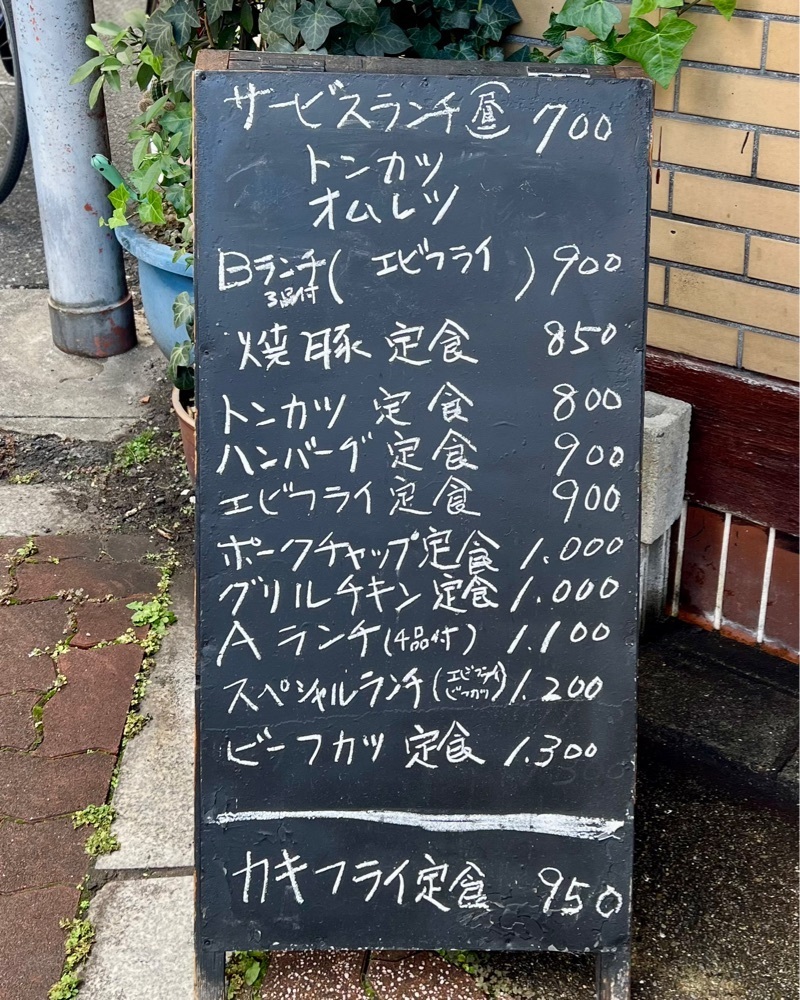 サービスランチ(昼) 700
トンカツ
オムレツ
Bランチ( エビフライ ) 900
3品付
焼豚定食 850
トンカツ定食 800
ハンバーグ定食 900
エビフライ定食 900
ポークチャップ定食 1.000
グリルチキン定食 1.000
Aランチ(4品付) 1.100
スペシャルランチ(エビフライ ビフカツ) 1.200
ビーフカツ定食 1.300
カキフライ定食 950